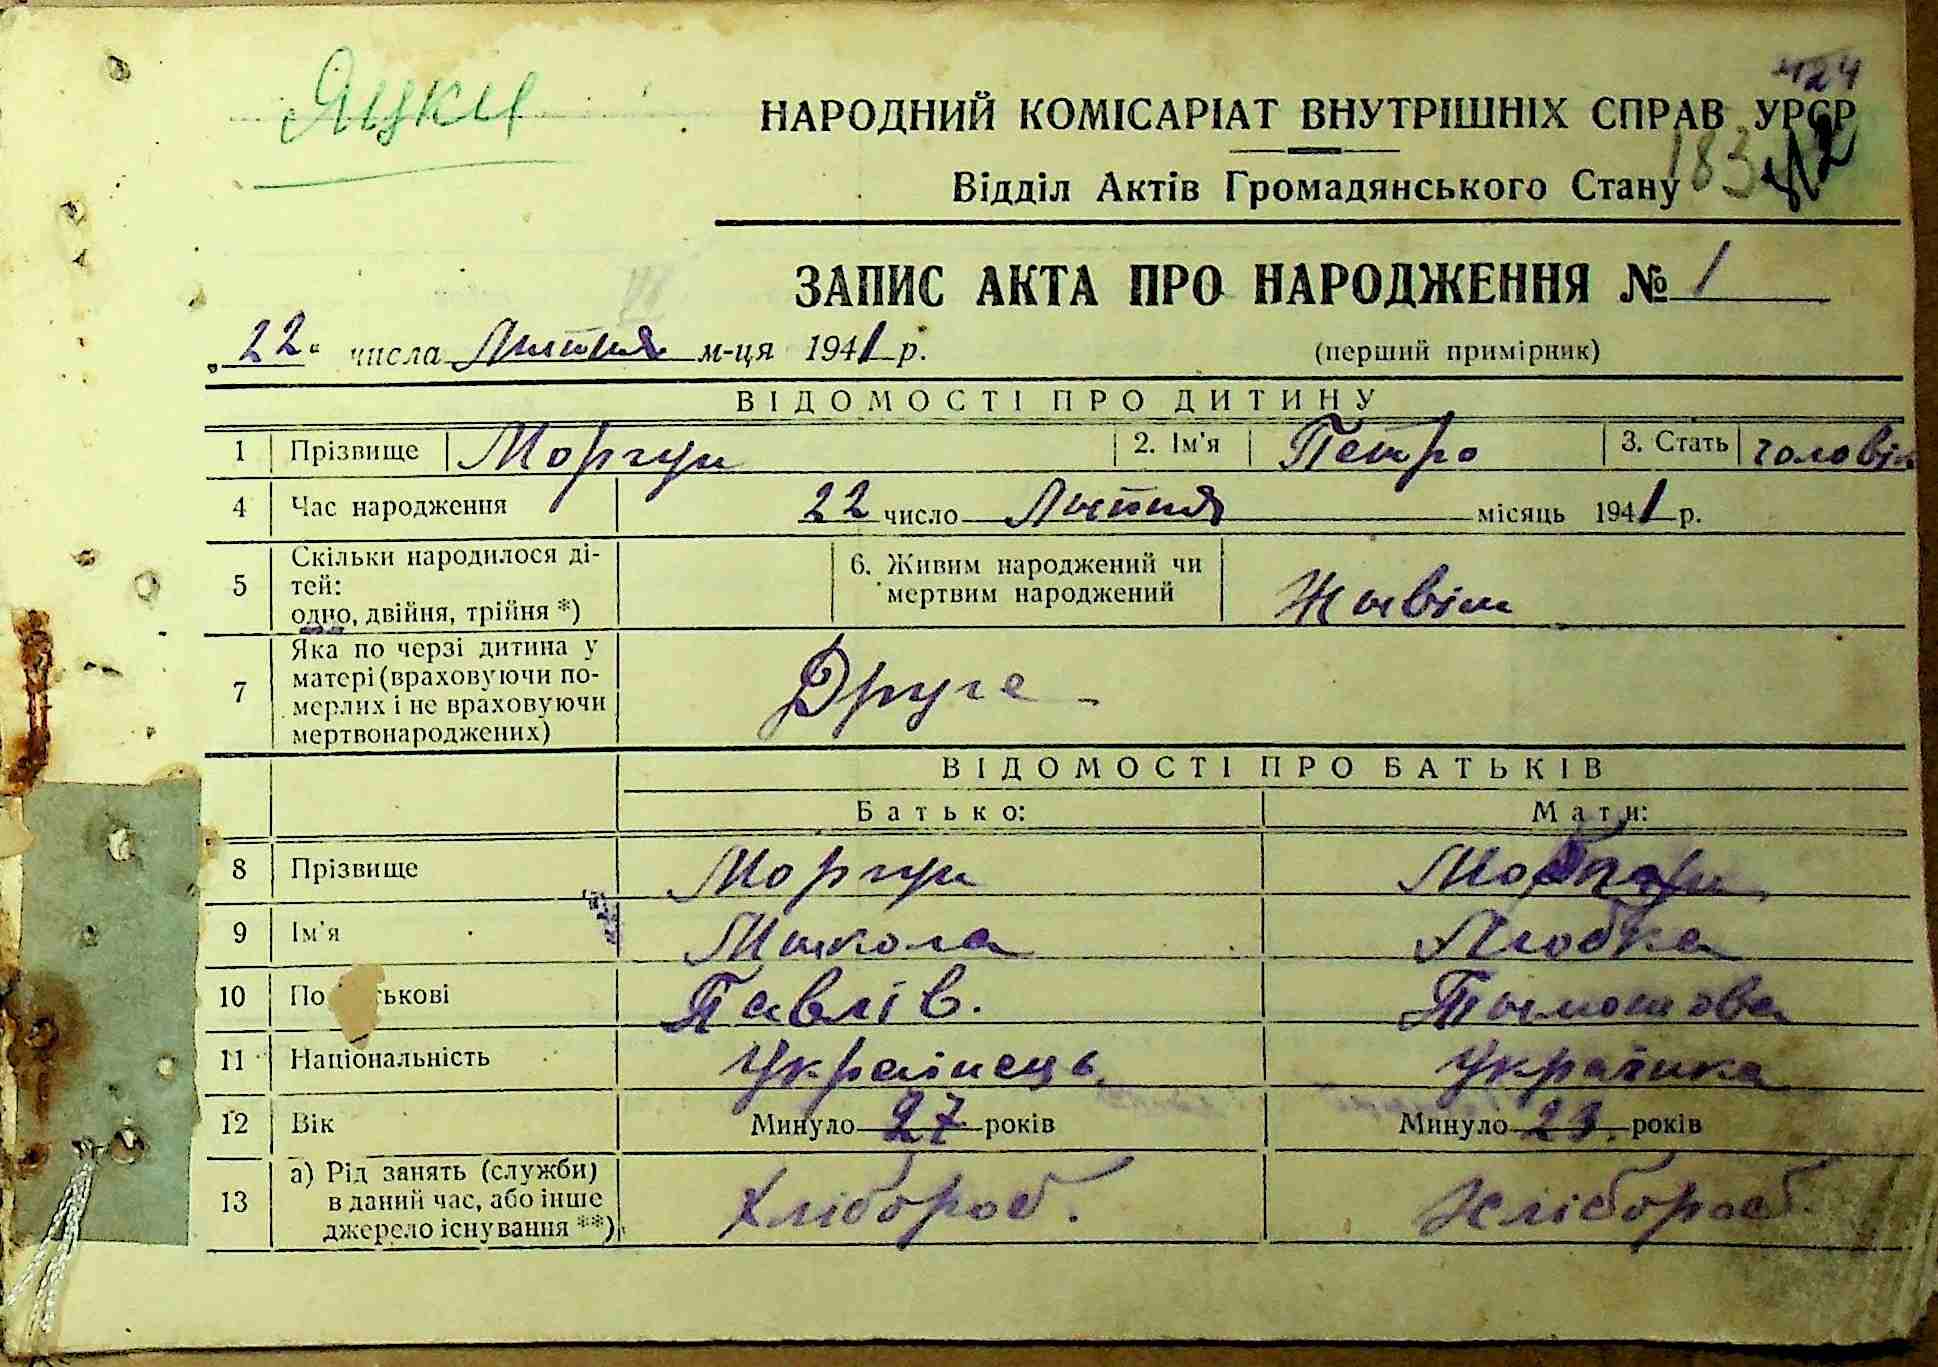 Яцки
424
НАРОДНИЙ КОМІСАРІАТ ВНУТРІШНІХ СПРАВ УРСР
183
Відділ Актів Громадянського Стану
ЗАПИС АКТА ПРО НАРОДЖЕННЯ № 1
"22" числа м-ця 1941 р. (перший примірник)
ВІДОМОСТІ ПРО ДИТИНУ
1 Прізвище Моргун 2. Ім'я Петро 3. Стать чоловіч
4 Час народження 22 число місяць 1941 р.
5 Скільки народилося ді-
тей:
одно, двійня, трійня *)
6. Живим народжений чи
мертвим народжений
Жывім
7 Яка по черзі дитина у
матері (враховуючи по-
мерлих і не враховуючи
мертвонароджених)
Друге
ВІДОМОСТІ ПРО БАТЬКІВ
Батько: Мати:
8 Прізвище Моргун
9 Ім'я Мыкола Любка
10 По тькові Павлів. Тымошова
11 Національність Українець Українка
12 Вік Минуло 27 років Минуло 23. років
13 а) Рід занять (служби)
в даний час, або інше
джерело існування **)
Хлібороб. Хлібороб.